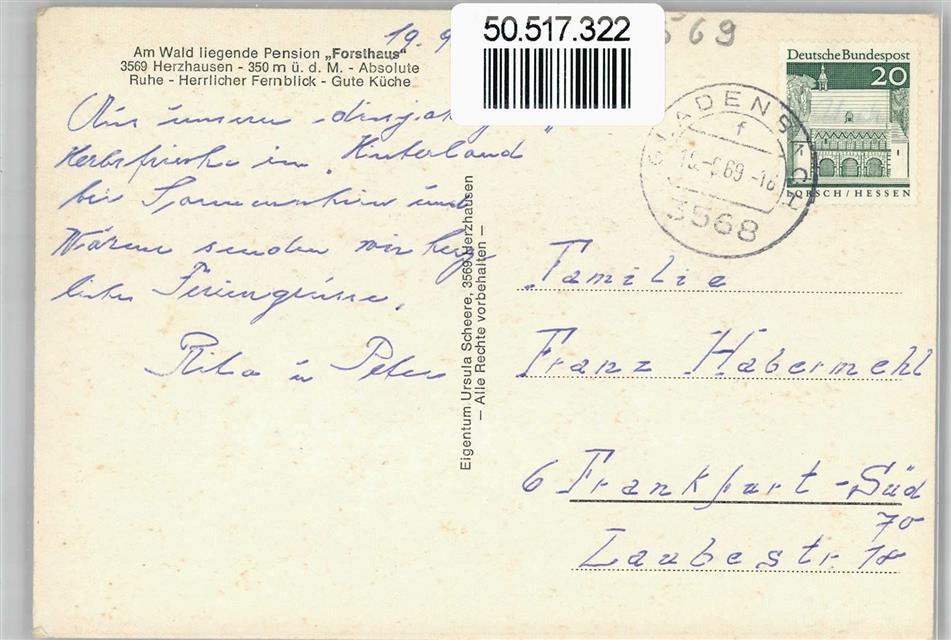 Am Wald liegende Pension „Forsthaus"
3569 Herzhausen - 350 m ü. d. M. - Absolute
Ruhe - Herrlicher Fernblick - Gute Küche
19. 9
50.517.322
569
Deutsche Bundespost
20
LORSCH / HESSEN
GLADENBACH
f
69 -16
3568
Aus unserer
Herbstfrische im "Hinterland"
bei Sonnenschein und
Wärme senden wir herz-
liche Feriengrüsse.
Rita u Peter
Eigentum Ursula Scheere, 3569 Herzhausen
— Alle Rechte vorbehalten —
Familie
Franz Habermehl
6 Frankfurt-Süd
70
Laubestr. 18